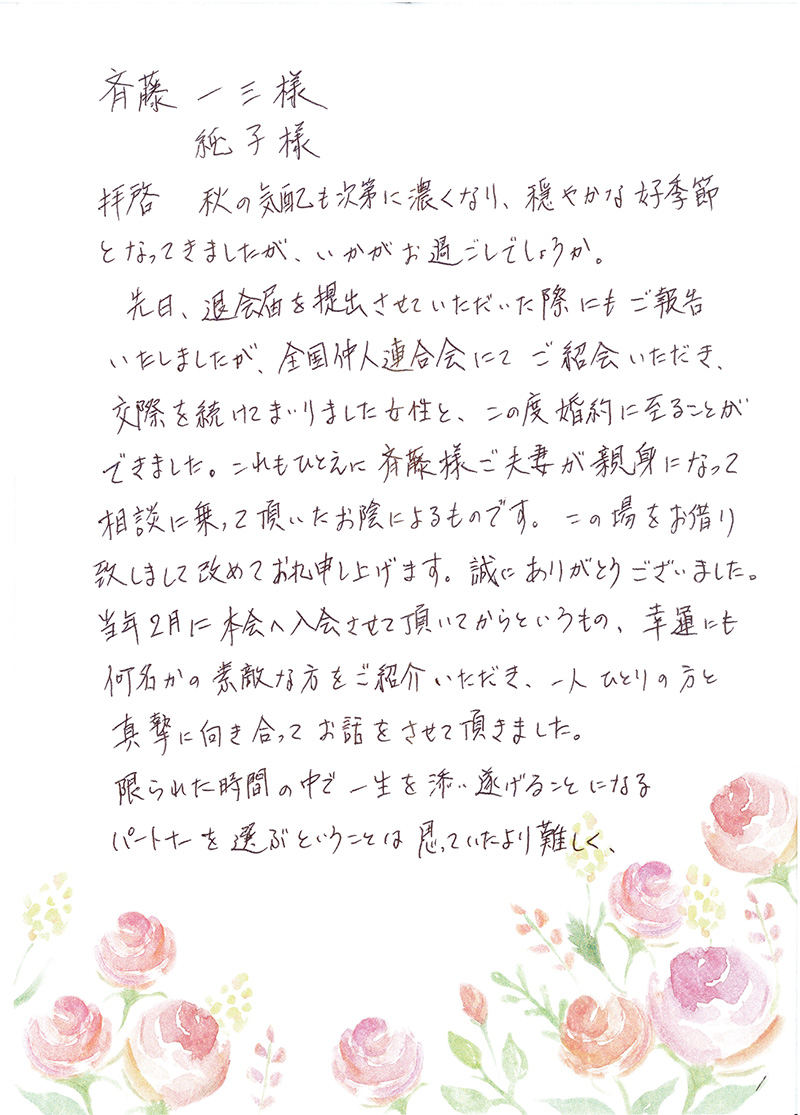 斉藤 一三様
純子様
拝啓 秋の気配も次第に濃くなり、穏やかな好季節
となってきましたが、いかがお過ごしでしょうか。
先日、退会届を提出させていただいた際にもご報告
いたしましたが、全国仲人連合会にてご紹会いただき、
交際を続けてまいりました女性と、この度婚約に至ることが
できました。これもひとえに斉藤様ご夫妻が親身になって
相談に乗って頂いたお陰によるものです。この場をお借り
致しまして改めてお礼申し上げます。誠にありがとうございました。
当年2月に本会へ入会させて頂いてからというもの、幸運にも
何名かの素敵な方をご紹介いただき、一人ひとりの方と
真摯に向き合ってお話をさせて頂きました。
限られた時間の中で一生を添い遂げることになる
パートナーを選ぶということは思っていたより難しく、
1